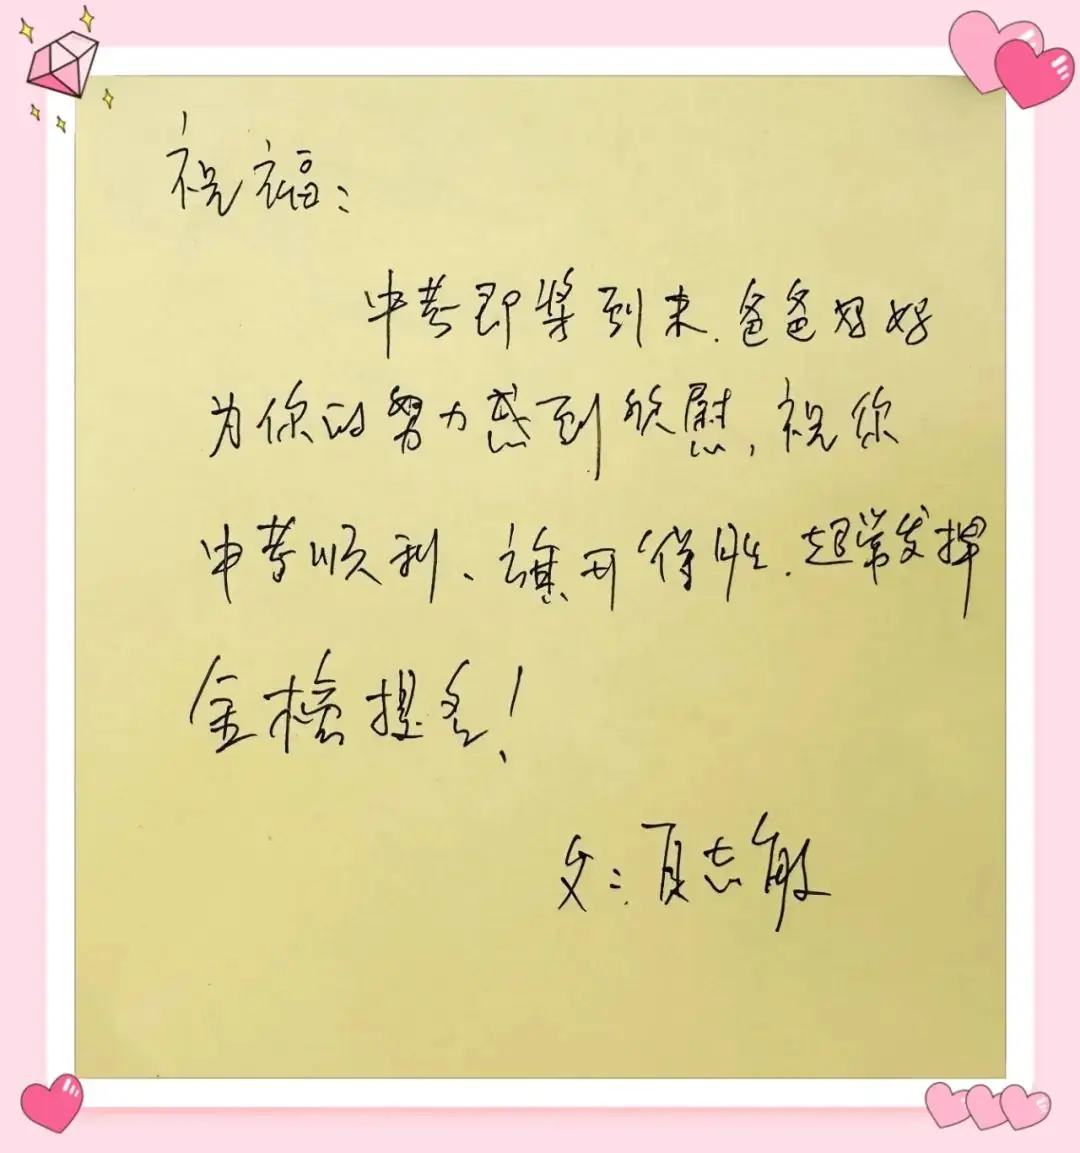 祝福:
中考即将到来.爸爸妈妈
为你的努力感到欣慰,祝你
中考顺利、旗开得胜.超常发挥
金榜提名!
父:夏志敏